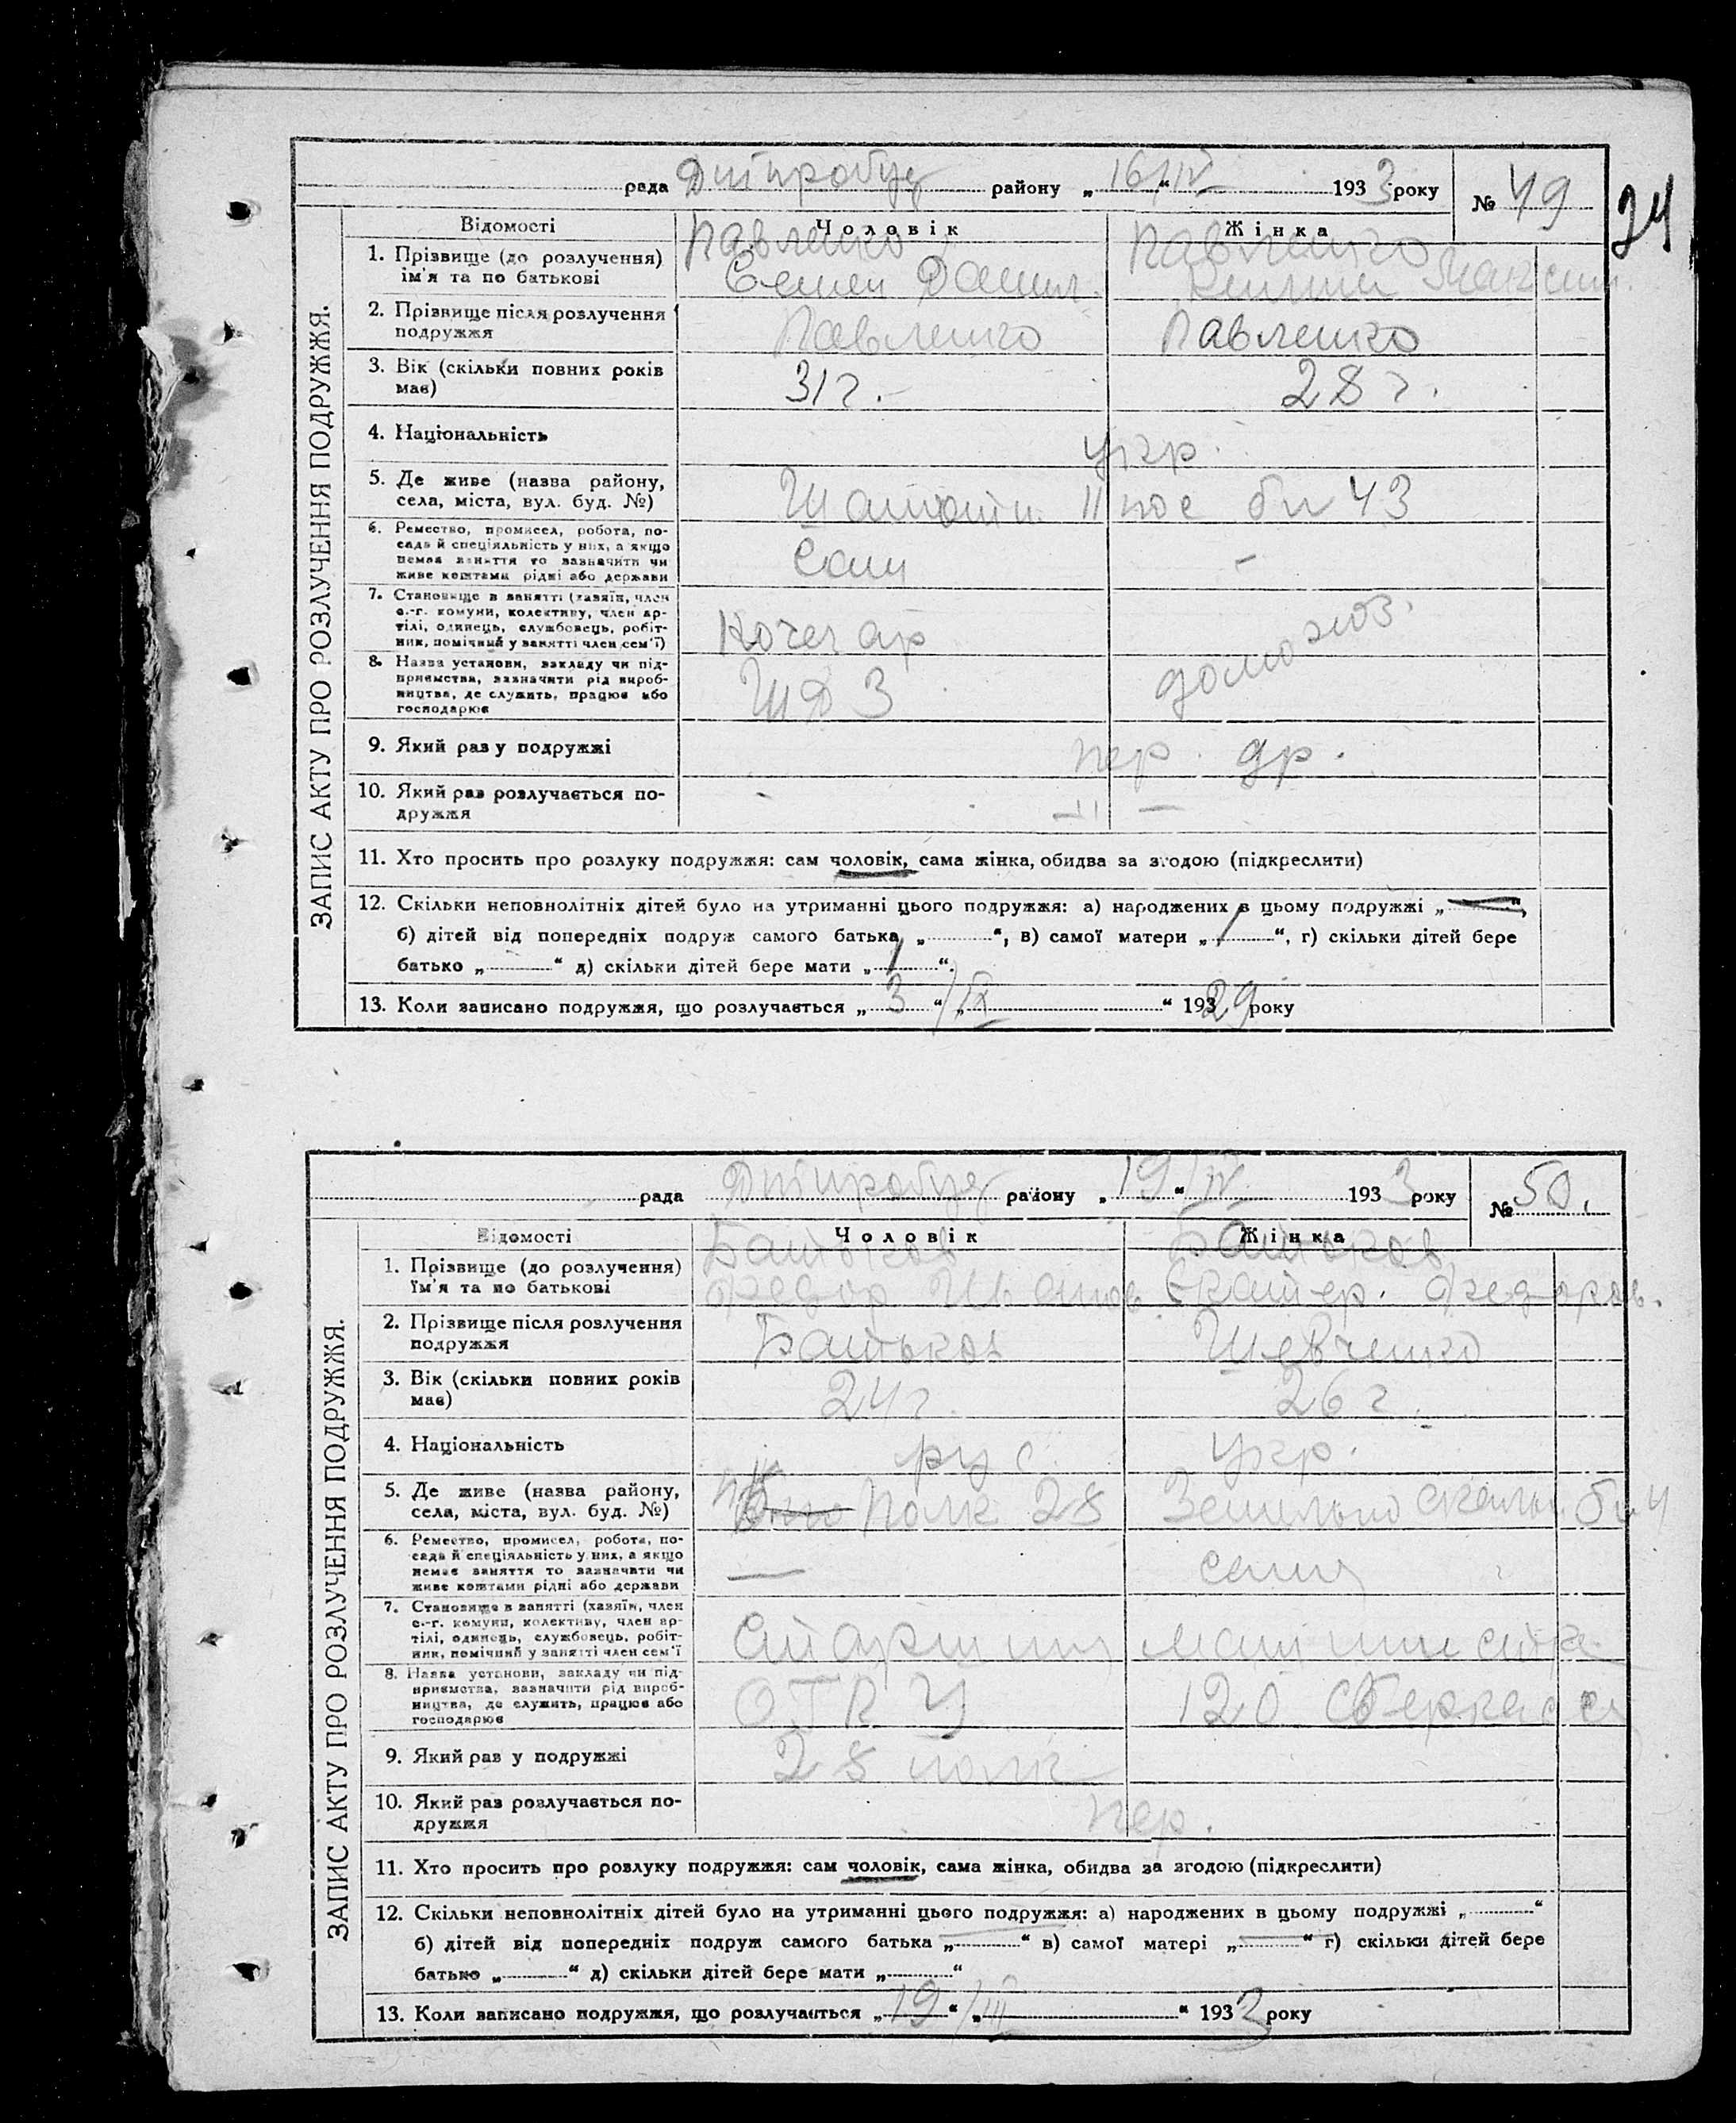 24
ЗАПИС АКТУ ПРО РОЗЛУЧЕННЯ ПОДРУЖЖЯ.
рада Дніпробуд району „16/IV“ 1933 року № 49
Відомості Чоловік Жінка
1. Прізвище (до розлучення) Павленко Павленко
ім'я та по батькові Семен Данил. Максим.
2. Прізвище після розлучення Павленко Павленко
подружжя
3. Вік (скільки повних років 31 г. 28 г.
має)
4. Національність укр.
5. Де живе (назва району,
села, міста, вул. буд. №) II пос 43
6. Ремество, промисел, робота, по-
сада й спеціяльність у них, а якщо Сам –
немає заняття то зазначити чи
живе коштами рідні або держави
7. Становище в занятті (хазяїн, член
с.-г. комуни, колективу, член ар-
тілі, одинець, службовець, робіт- Кочегар домохоз.
ник, помічний у занятті член сем'ї)
8. Назва установи, закладу чи під-
приємства, зазначити рід вироб- ШДЗ
ництва, де служить, працює або
господарює
9. Який раз у подружжі пер. др.
10. Який раз розлучається по- –"–
дружжя
11. Хто просить про розлуку подружжя: сам чоловік, сама жінка, обидва за згодою (підкреслити)
12. Скільки неповнолітніх дітей було на утриманні цього подружжя: а) народжених в цьому подружжі „—“,
б) дітей від попередніх подруж самого батька „ “, в) самої матери „1“, г) скільки дітей бере
батько „ “ д) скільки дітей бере мати „1“.
13. Коли записано подружжя, що розлучається „3“/„IX “ 19329 року
ЗАПИС АКТУ ПРО РОЗЛУЧЕННЯ ПОДРУЖЖЯ.
рада Дніпробуд району „19“/IV 1933 року № 50.
Відомості Чоловік Жінка
1. Прізвище (до розлучення) Батьков Батьков
їм'я та по батькові Федор Иванов. Екатер. Федоров.
2. Прізвище після розлучення Батьков Шевченко
подружжя
3. Вік (скільки повних років 24 г. 26 г.
має)
4. Національність рус укр.
5. Де живе (назва району,
села, міста, вул. буд. №) Полк 28 4
6. Ремество, промисел, робота, по-
сада й спеціяльність у них, а якщо — сама
немає заняття то зазначати чи
живе коштами рідні або держави
7. Становище в занятті (хазяїн, член
с.-г. комуни, колективу, член ар-
тілі, одинець, службовець, робіт- Старшин машинистка
ник, помічний у занятті член сем'ї
8. Назва установи, закладу чи під-
приємства, зазначити рід вироб- ОГПУ 120 Сберкасса
ництва, де служить, працює або
господарює
9. Який раз у подружжі 28 полк
10. Який раз розлучається по- пер.
дружжя
11. Хто просить про розлуку подружжя: сам чоловік, сама жінка, обидва за згодою (підкреслити)
12. Скільки неповнолітніх дітей було на утриманні цього подружжя: а) народжених в цьому подружжі „ “
б) дітей від попередніх подруж самого батька „—“ в) самої матері „—“ г) скільки дітей бере
батько „ “ д) скільки дітей бере мати „ “
13. Коли записано подружжя, що розлучається „19“/„III “ 1933 року